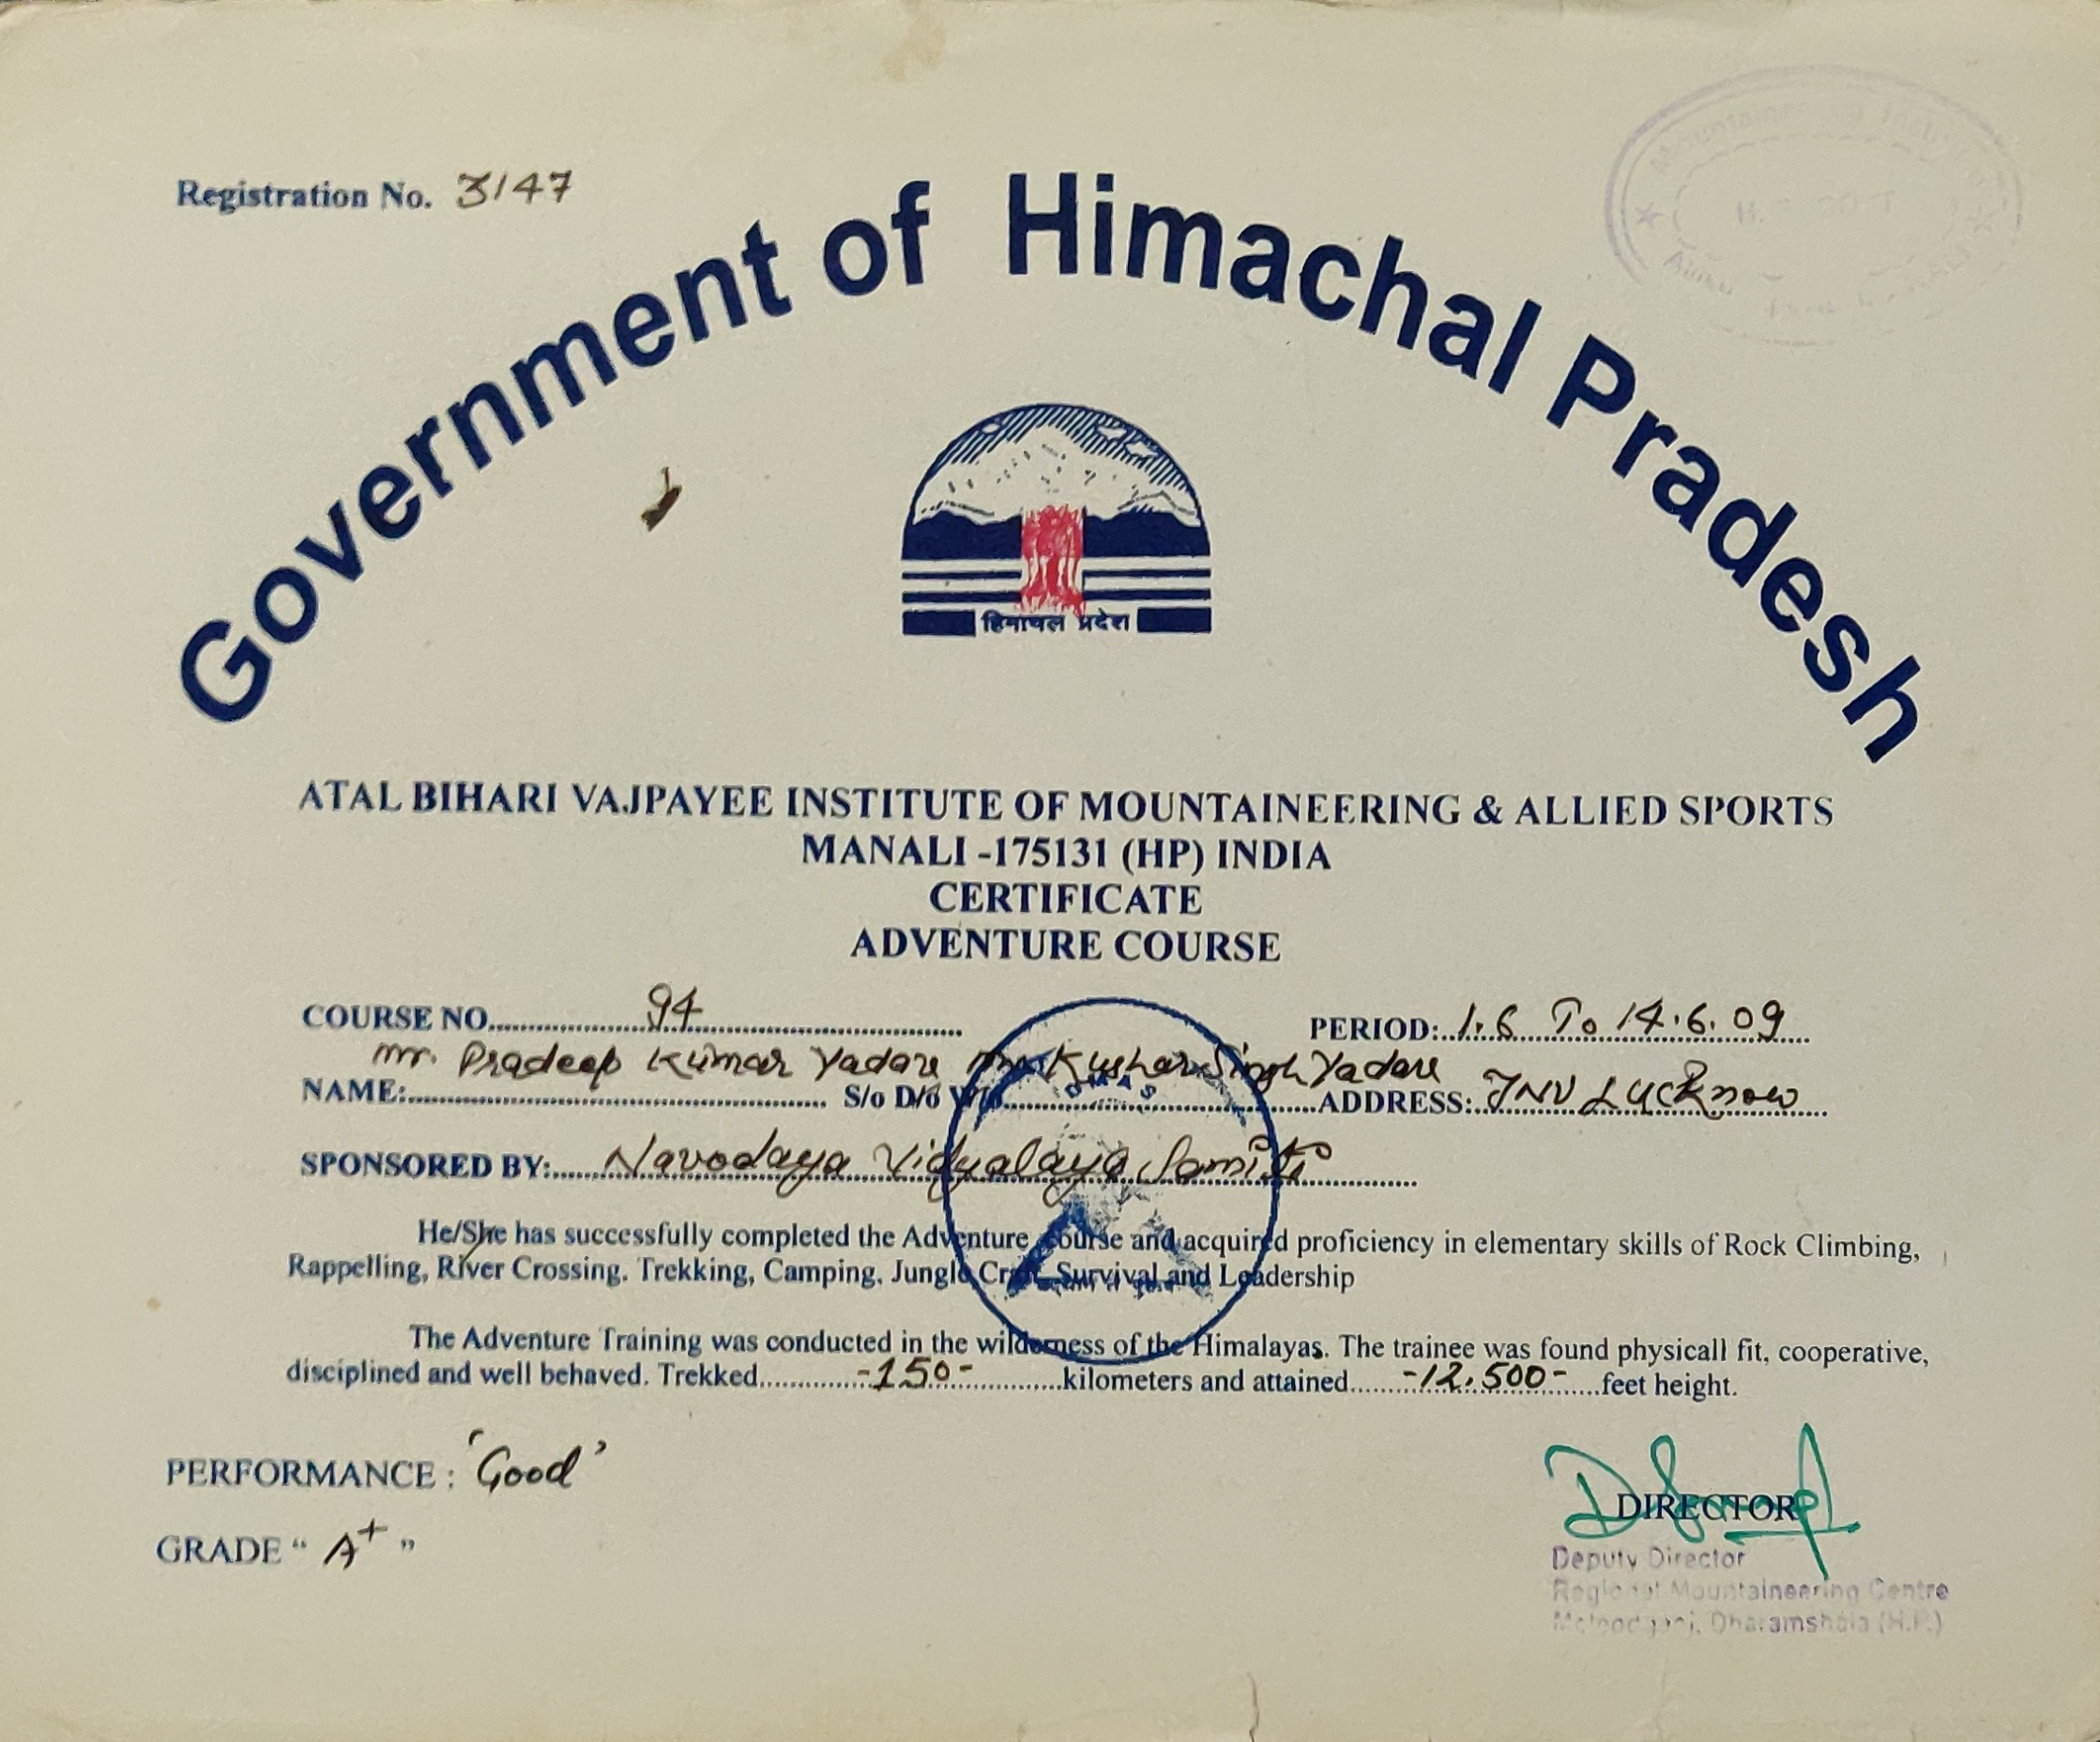 Registration No. 3147
Government of Himachal Pradesh
हिमाचल प्रदेश
ATAL BIHARI VAJPAYEE INSTITUTE OF MOUNTAINEERING & ALLIED SPORTS
MANALI -175131 (HP) INDIA
CERTIFICATE
ADVENTURE COURSE
COURSE NO. 94 PERIOD: 1.6 To 14.6.09
NAME: Mr. Pradeep Kumar Yadav S/o D/o W/o Singh Yadav ADDRESS: JNV Lucknow
SPONSORED BY: Navodaya Vidyalaya Samiti
He/She has successfully completed the Adventure Course and acquired proficiency in elementary skills of Rock Climbing,
Rappelling, River Crossing, Trekking, Camping, Jungle Craft, Survival and Leadership
The Adventure Training was conducted in the wilderness of the Himalayas. The trainee was found physicall fit, cooperative,
disciplined and well behaved. Trekked -150- kilometers and attained -12,500- feet height.
PERFORMANCE : 'Good'
GRADE " A+ "
DIRECTOR
Deputy Director
Regional Mountaineering Centre
Mcleodganj, Dharamshala (H.P.)